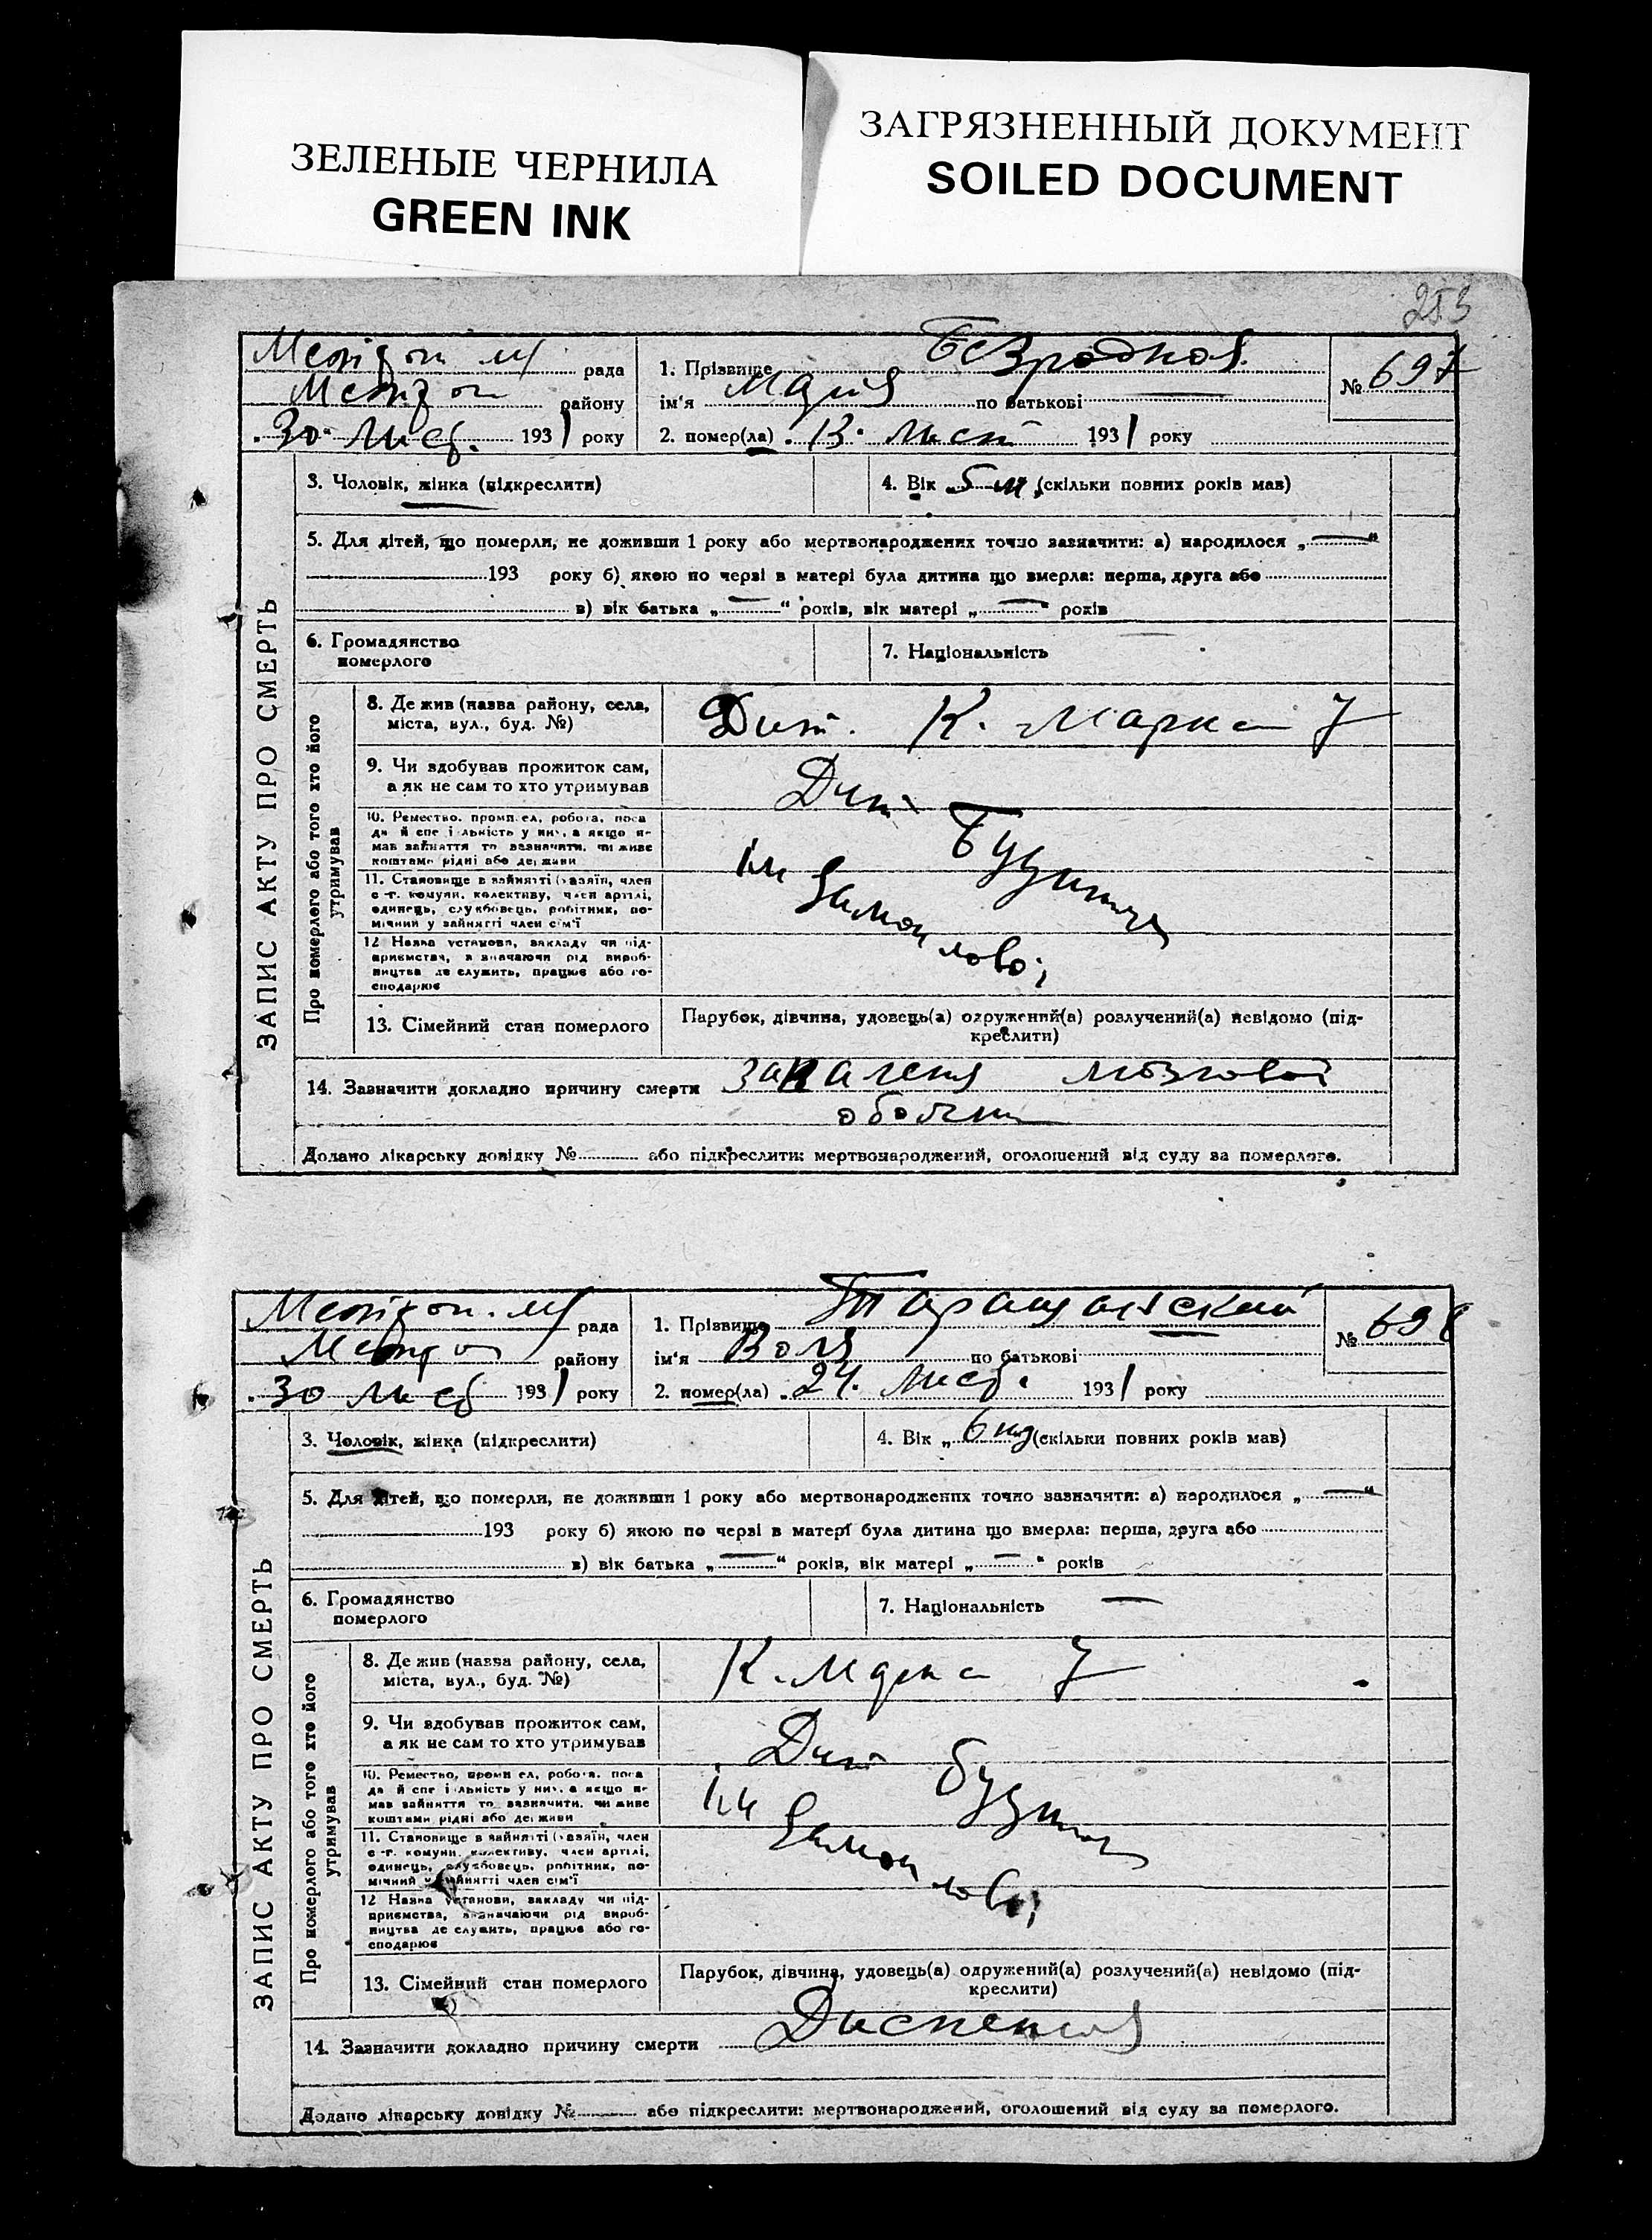 ЗЕЛЕНЫЕ ЧЕРНИЛА
GREEN INK
ЗАГРЯЗНЕННЫЙ ДОКУМЕНТ
SOILED DOCUMENT
253
рада
району
30 Лист. 1931 року
1. Прізвище Безродная
ім'я Мария по батькові —
2. помер(ла) 13. Лист 1931 року
№ 697
ЗАПИС АКТУ ПРО СМЕРТЬ
3. Чоловік, жінка (підкреслити)
4. Вік 5 м. (скільки повних років мав)
5. Для дітей, що померли, не доживши 1 року або мертвонароджених точно зазначити: а) народилося „—“
193 року б) якою по черзі в матері була дитина що вмерла: перша, друга або
в) вік батька „—“ років, вік матері „—“ років
6. Громадянство
померлого
7. Національність
Про померлого або того хто його
утримував
8. Де жив (назва району, села,
міста, вул., буд. №)
Дит. К. Маркса 7
9. Чи здобував прожиток сам,
а як не сам то хто утримував
Дит. Будинок
10. Ремество, промисел, робота, поса
да й спеціальність у них, а якщо не
мав зайняття то зазначити, чи живе
коштами рідні або держави
ім
11. Становище в зайнятті (хазяїн, член
с-г. комуни, колективу, член артілі,
одинець, службовець, робітник, по-
мічний у зайнятті член сім'ї
Самойлової
12 Назва установи, закладу чи під-
приємства, зазначаючи рід вироб-
ництва де служить, працює або го-
сподарює
13. Сімейний стан померлого
Парубок, дівчина, удовець(а) одружений(а) розлучений(а) невідомо (під-
креслити)
14. Зазначити докладно причину смерти Запаленя мозковой
оболчки
Додано лікарську довідку № або підкреслити: мертвонароджений, оголошений від суду за померлого.
рада
району
30 Лист 1931 року
1. Прізвище Таращанский
ім'я Воля по батькові
2. помер(ла) 24. Лист. 1931 року
№ 698
ЗАПИС АКТУ ПРО СМЕРТЬ
3. Чоловік, жінка (підкреслити)
4. Вік „ 6 (скільки повних років мав)
5. Для дітей, що померли, не доживши 1 року або мертвонароджених точно зазначити: а) народилося „—“
193 року б) якою по черзі в матері була дитина що вмерла: перша, друга або
в) вік батька „—“ років, вік матері „—“ років
6. Громадянство
померлого
7. Національність —
Про померлого або того хто його
утримував
8. Де жив (назва району, села,
міста, вул., буд. №)
К. Маркса 7
9. Чи здобував прожиток сам,
а як не сам то хто утримував
Дит будинок
10. Ремество, промисел, робота, поса
да й спеціальність у них, а якщо не
мав зайняття то зазначити, чи живе
коштами рідні або держави
ім
11. Становище в зайнятті (хазяїн, член
с-г. комуни, колективу, член артілі,
одинець, службовець, робітник, по-
мічний у зайнятті член сім'ї
Самойлової
12 Назва установи, закладу чи під-
приємства, зазначаючи рід вироб-
ництва де служить, працює або го-
сподарює
13. Сімейний стан померлого
Парубок, дівчина, удовець(а) одружений(а) розлучений(а) невідомо (під-
креслити)
14. Зазначити докладно причину смерти Диспепсия
Додано лікарську довідку № або підкреслити: мертвонароджений, оголошений від суду за померлого.